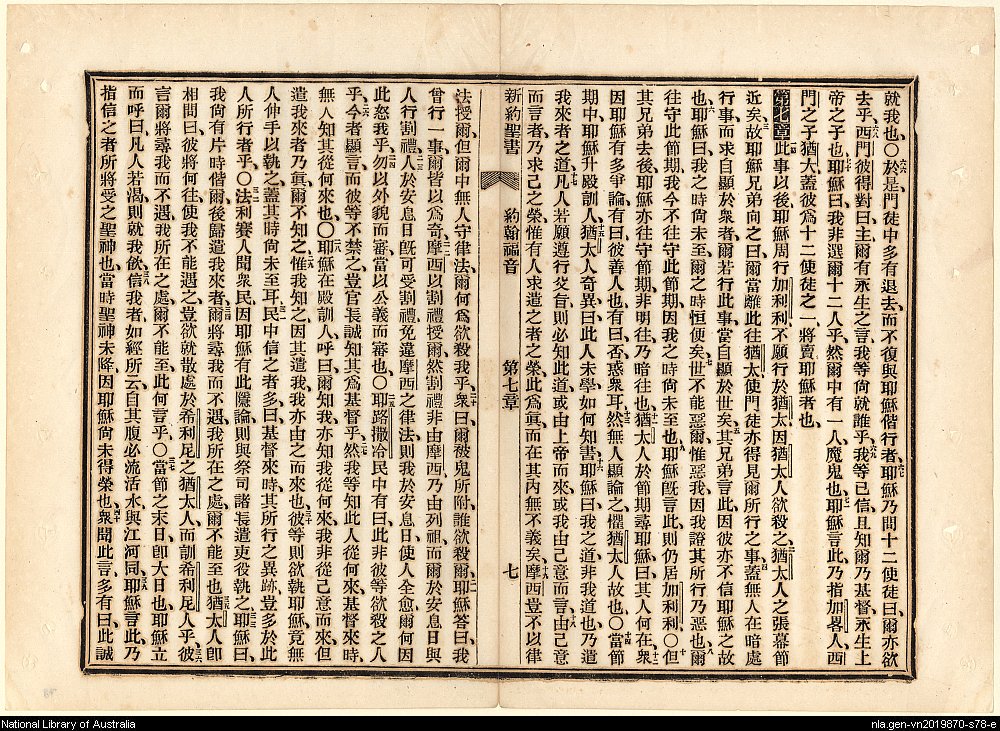 就我也、〇於是門徒中多有退去、而不復與耶穌偕行者、耶穌乃問十二使徒曰、爾亦欲
去乎、西門彼得對曰、主爾有永生之言、我等尙就誰乎、我等已信、且知爾乃基督、永生上
帝之子也、耶穌曰、我非選爾十二人乎、然爾中有一人、魔鬼也、耶穌言此、乃指加畧人、西
門之子猶大、蓋彼爲十二使徒之一、將賣耶穌者也、
第七章 此事以後、耶穌周行加利利、不願行於猶太、因猶太人欲殺之、猶太人之張幕節
近矣、故耶穌兄弟向之曰、爾當離此往猶太、使門徒亦得見爾所行之事、蓋無人在暗處
行事、而求自顯於衆者、爾若行此事、當自顯於世矣、其兄弟言此、因彼亦不信耶穌之故
也、耶穌曰、我之時尙未至、爾之時恒便矣、世不能惡爾、惟惡我、因我證其所行乃惡也、爾
往守此節期、我今不往守此節期、因我之時尙未至也、耶穌旣言此、則仍居加利利、〇但
其兄弟去後、耶穌亦往守節期、非明往、乃暗往也、猶太人於節期尋耶穌曰、其人何在、衆
因耶穌有多爭論、有曰、彼善人也、有曰、否、惑衆耳、然無人顯論之、懼猶太人故也、〇當節
期中、耶穌升殿訓人、猶太人奇異曰、此人未學、如何知書、耶穌曰、我之道、非我道也、乃遣
我來者之道、凡人若願遵行父旨、則必知此道、或由上帝而來、或我由己意而言、由己意
而言者、乃求己之榮、惟有人求遣之者之榮、此爲眞、而在其內無不義矣、摩西豈不以律
新約聖書 約翰福音 第七章 七
法授爾、但爾中無人守律法、爾何爲欲殺我乎、衆曰、爾被鬼所附、誰欲殺爾、耶穌答曰、我
曾行一事、爾皆以爲奇、摩西以割禮授爾、然割禮非由摩西、乃由列祖、而爾於安息日與
人行割禮、人於安息日旣可受割禮、免違摩西之律法、則我於安息日使人全愈、爾何因
此怒我乎、勿以外貌而審、當以公義而審也、〇耶路撒冷民中有曰、此非彼等欲殺之人
乎、今者顯言、而彼等不禁之、豈官長誠知其爲基督乎、然我等知此人從何來、基督來時、
無人知其從何來也、〇耶穌在殿訓人、呼曰、爾知我、亦知我從何來、我非從己意而來、但
遣我來者乃眞、爾不知之、惟我知之、因其遣我、我亦由之而來也、彼等則欲執耶穌、竟無
人伸手以執之、蓋其時尙未至耳、民中信之者多、曰、基督來時、其所行之異跡、豈多於此
人所行者乎、〇法利賽人聞衆民因耶穌有此隱論、則與祭司諸長遣吏役執之、耶穌曰、
我尙有片時偕爾、後歸遣我來者、爾將尋我而不遇、我所在之處、爾不能至也、猶太人卽
相問曰、彼將何往、使我不能遇之、豈欲就散處於希利尼之猶太人、而訓希利尼人乎、彼
言爾將尋我而不遇、我所在之處、爾不能至、此何言乎、〇當節之末日、卽大日也、耶穌立
而呼曰、凡人若渴、則就我飲、信我者、如經所云、自其腹必流活水、與江河同、耶穌言此、乃
指信之者所將受之聖神也、當時聖神未降、因耶穌尙未得榮也、衆聞此言、多有曰、此誠
National Library of Australia
nla.gen-vn2019870-s78-e